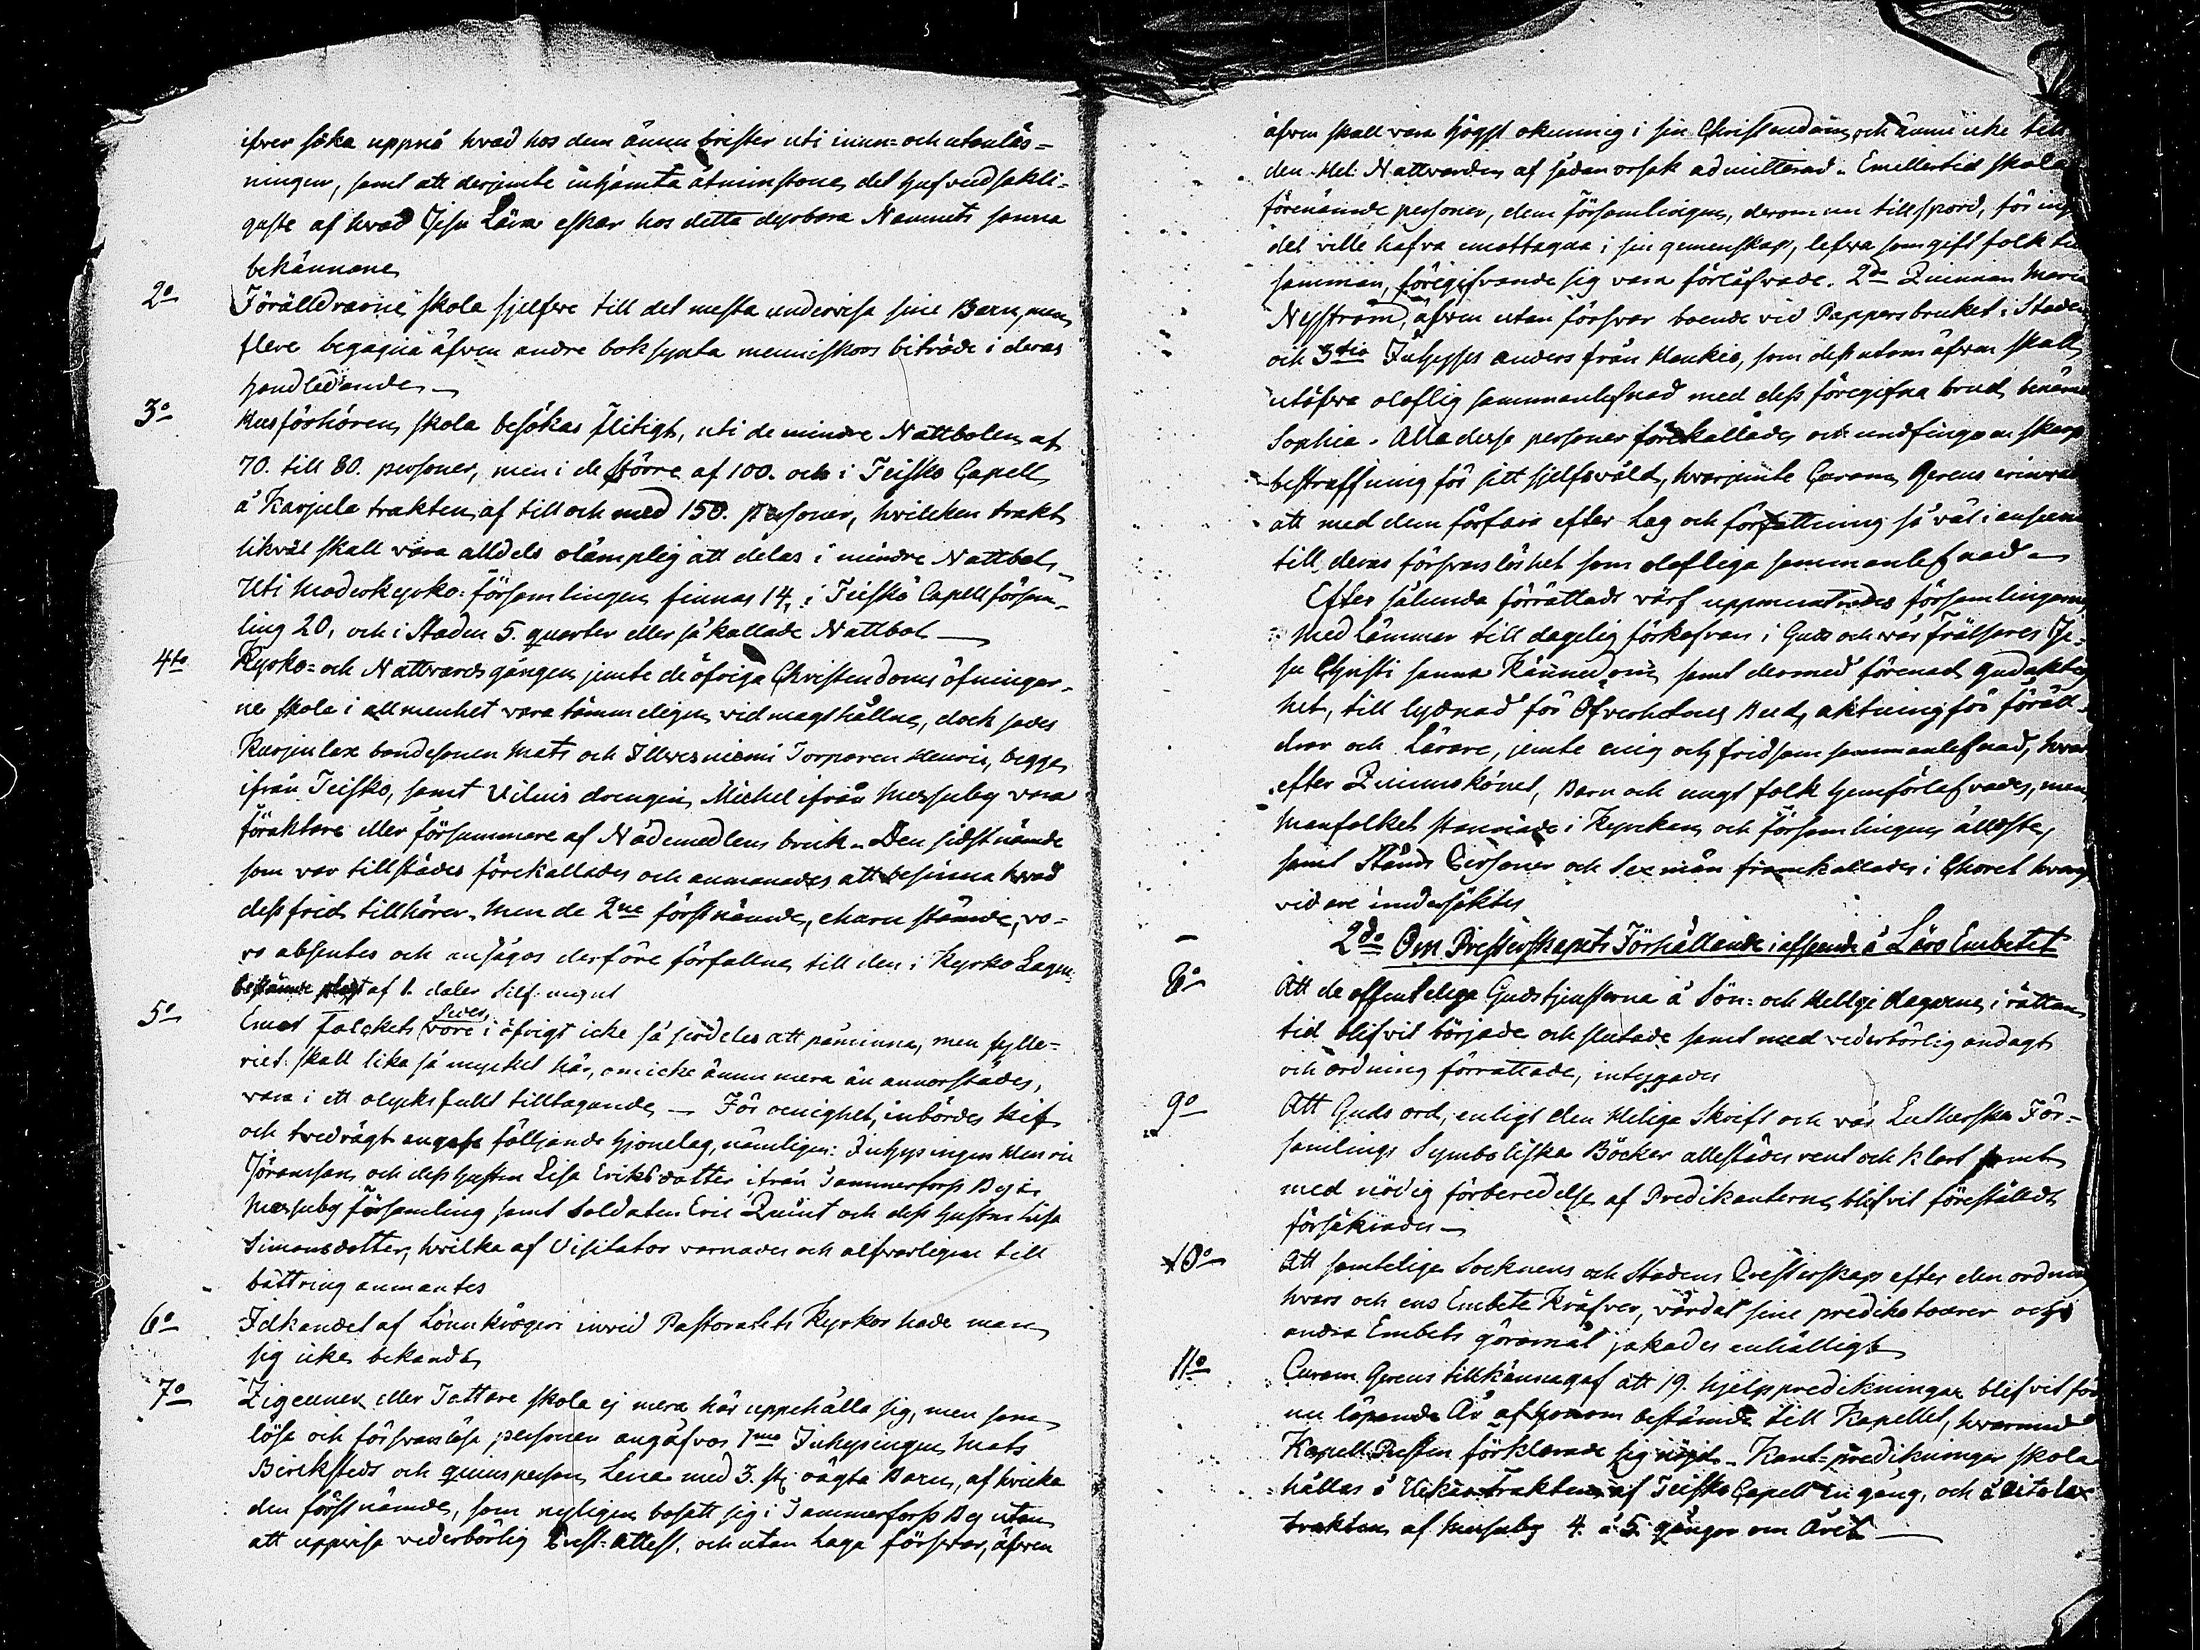 ifver söka uppnå hvad hos dem ännu brister uti innan- och utanläs=
ningen, samt att derjemte inhämta åtminstone det hufvudsakli=
gaste af hvad Jesu Lära eskar hos detta dyrbara Namnets sanna
bekännare
2o Förälldrarne skola sjelfve till det mesta undervisa sine Barn, men
flere begagna äfven andre bok synta menniskors biträde i deras
handledande
3o Husförhören skola besökas flitigt, uti de mindre Nattbolen af
70. till 80. personer, men i de större af 100. och i Teisko Capell
å Karjula trakten af till och med 150. personer, hvilken trakt
likväl skall vara alldels olämplig att delas i mindre Nattbol
Uti Moderkyrko-församlingen finnas 14, i Teisko Capellförsam-
ling 20, och i Staden 5. quarter eller så kallade Nattbol
4to Kyrko- och Nattvardsgången jemte de öfriga Christendoms öfningar-
ne skola i allmenhet vara tämmeligen vid magt hållne, dock sades
Karjulax bondesonen Mats och Ilvesniemi Torparen Henric, begge
ifrån Teisko, samt Vilnis drengen Michel ifrån Messuby vara
föraktare eller försummare af Nådemedlens bruk. Den sidstnämde
som var tillstädes förekallades och anmanades att besinna hvad
dess frid tillhörer. Men de 2ne förstnämde, ehuru stämde, vo-
ro absentes och ansågos derföre förfallne till den i Kyrko Lagen
bestämde plikt af 1. daler Silf: mynt
5o Emot Folckets Seder vore i öfrigt icke så serdeles att påminna, men fylle-
riet skall lika så mycket här, om icke ännu mera än annorstädes,
vara i ett olycksfullt tilltagande. För oenighet, inbördes kif
och tvedrägt angafs följande hjonelag, nämligen: Inhysingen Henric
Jöransson och dess hustru Lisa Eriksdotter ifrån Tammerfors By i
Messuby församling samt Soldaten Eric Quint och dess hustru Lisa
Simonsdotter, hvilka af Visitator varnades och alfvarligen till
bättring anmantes
6o Idkandet af Lönnkrögeri invid Pastoratets Kyrkor hade man
sig icke bekandt
7o Zigeuner eller Tattare skola ej mera här uppehålla sig, men som
lösa och försvarslösa personer angåfvos 1mo Inhysingen Mats
Bircksteds och quinsperson Lena med 3. st. oägta Barn, af hvilka
den förstnämde, som nyligen bosatt sig i Tammerfors By utan
att uppvisa vederbörlig Prest-attest, och utan laga försvar, äfven
äfven skall vara högst okunnig i sin Christendom, och ännu icke till
den Hel. Nattvarden af sådan orsak admitterad. Emellertid skola
förenämde personer, dem församlingen, derom nu tillspord, för ing
det ville hafva emottagna i sin gemenskap, lefva som gift folk till
samman, föregifvande sig vara förlåfvade. 2do Quinnan Maria
Nyström, äfven utan försvar boende vid Pappersbruket i Staden
och 3tio Inhyses Anders från Haukio, som dessutom äfven skall
utöfva oloflig sammanlefnad med dess föregifna brud, benämd
Sophia. Alla dessa personer förekallades och undfingo en skarp
bestraffning för sitt sjelfsvåld, hvarjemte Curam Gerens erinrades
att med dem förfara efter Lag och författning så väl i anseende
till deras försvarslöshet som olofliga sammanlefnad
Efter sålunda förrättadt värf uppmuntrades församlingarnes
medlämmar till dagelig förkofran i Guds och vår Frälsares Je-
su Christi sanna Kännedom, samt dermed förenad gudaktig
het, till lydnad för Öfverhetens Bud, aktning för föräll-
drar och Lärare, jemte enig och fridsam sammanlefnad, hvar
efter Quinnskönet, Barn och ungt folk hemförlofvades, men
Manfolket stannade i Kyrckan, och församlingens äldste,
samt Stånds Personer och Sexmän framkallades i Choret hvarest
vidare undersöktes
2do Om Presterskapets Förhållande i afseende å Läro Embetet
8o Att de offentelige Gudstjensterna å Sön- och Helige dagarne i rättan
tid blifvit började och slutade samt med vederbörlig andagt
och ordning förrättade, intygades
9o Att Guds ord, enligt den Helige Skrift och vår Lutherska För-
samlings Symboliska Böcker allestädes rent och klart samt
med nödig förberedelse af Predikanterne blifvit föreställdt
försäkrades
10o Att samtelige Socknens och Stadens Presterskap efter den ordning
hvars och ens Embete kräfver, vårdat sine predikoturer och
andra Embets göromål jakades enhälligt
11o Curam Gerens tillkännagaf att 19. hjelppredikningar blifvit för
nu löpande År af honom bestämde till Kapellet, hvarmed
Kapell Presten förklarade sig nöjd. Kant-predikningar skola
hållas å Ukäa trakten af Teisko Capell en gång, och å Aitolax
trakten af Messuby 4. à 5. gånger om Året